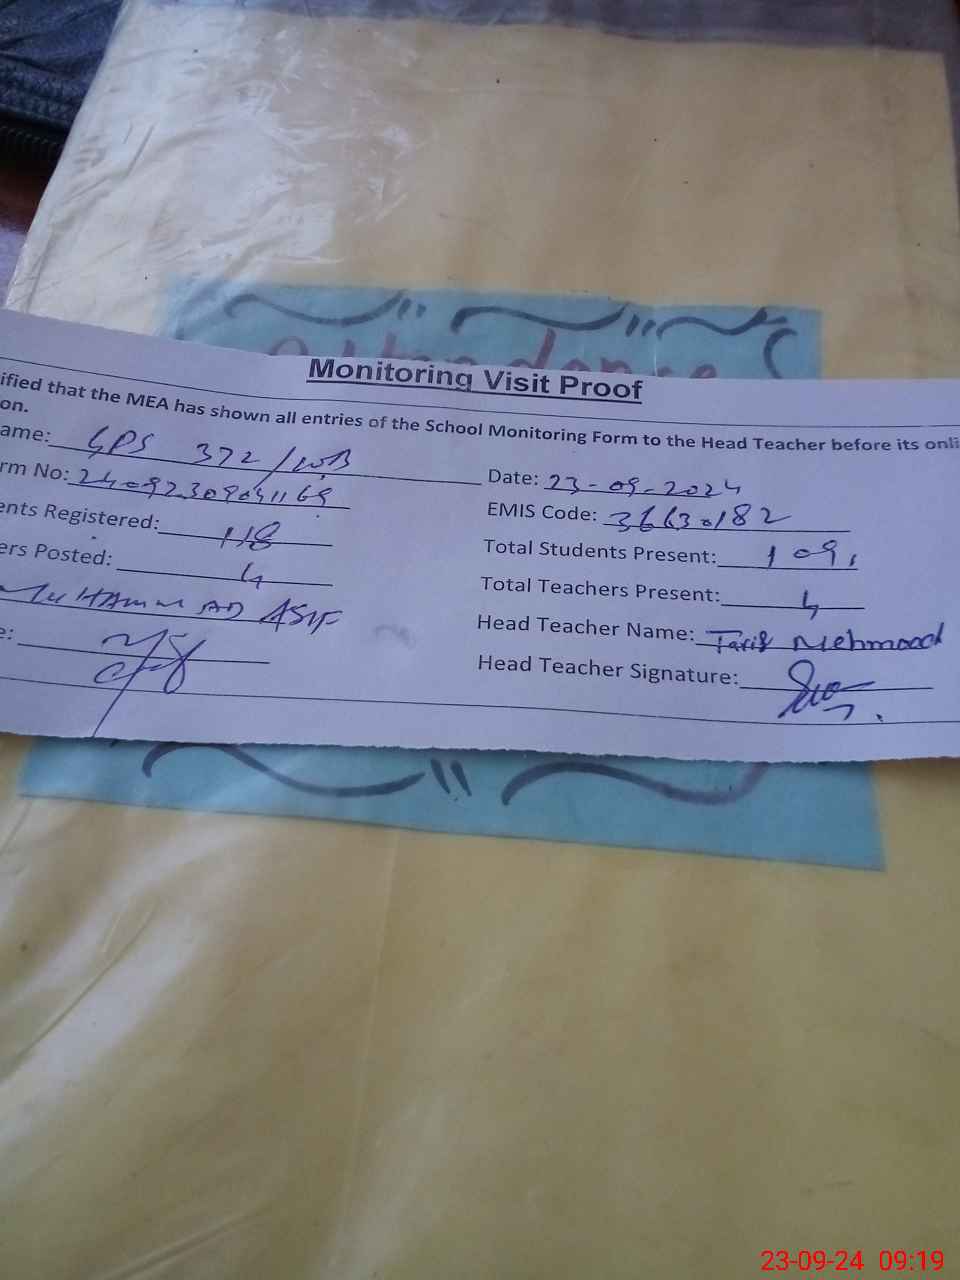 Attendance
Monitoring Visit Proof
ified that the MEA has shown all entries of the School Monitoring Form to the Head Teacher before its onli
on.
ame: GPS 372/WB Date: 23-09-2024
rm No: 2409230909041169 EMIS Code: 36630182
ents Registered: 118 Total Students Present: 109
ers Posted: 4 Total Teachers Present: 4
MUHAMMAD ASIF Head Teacher Name: Tariq Mehmood
e: Head Teacher Signature:
23-09-24 09:19